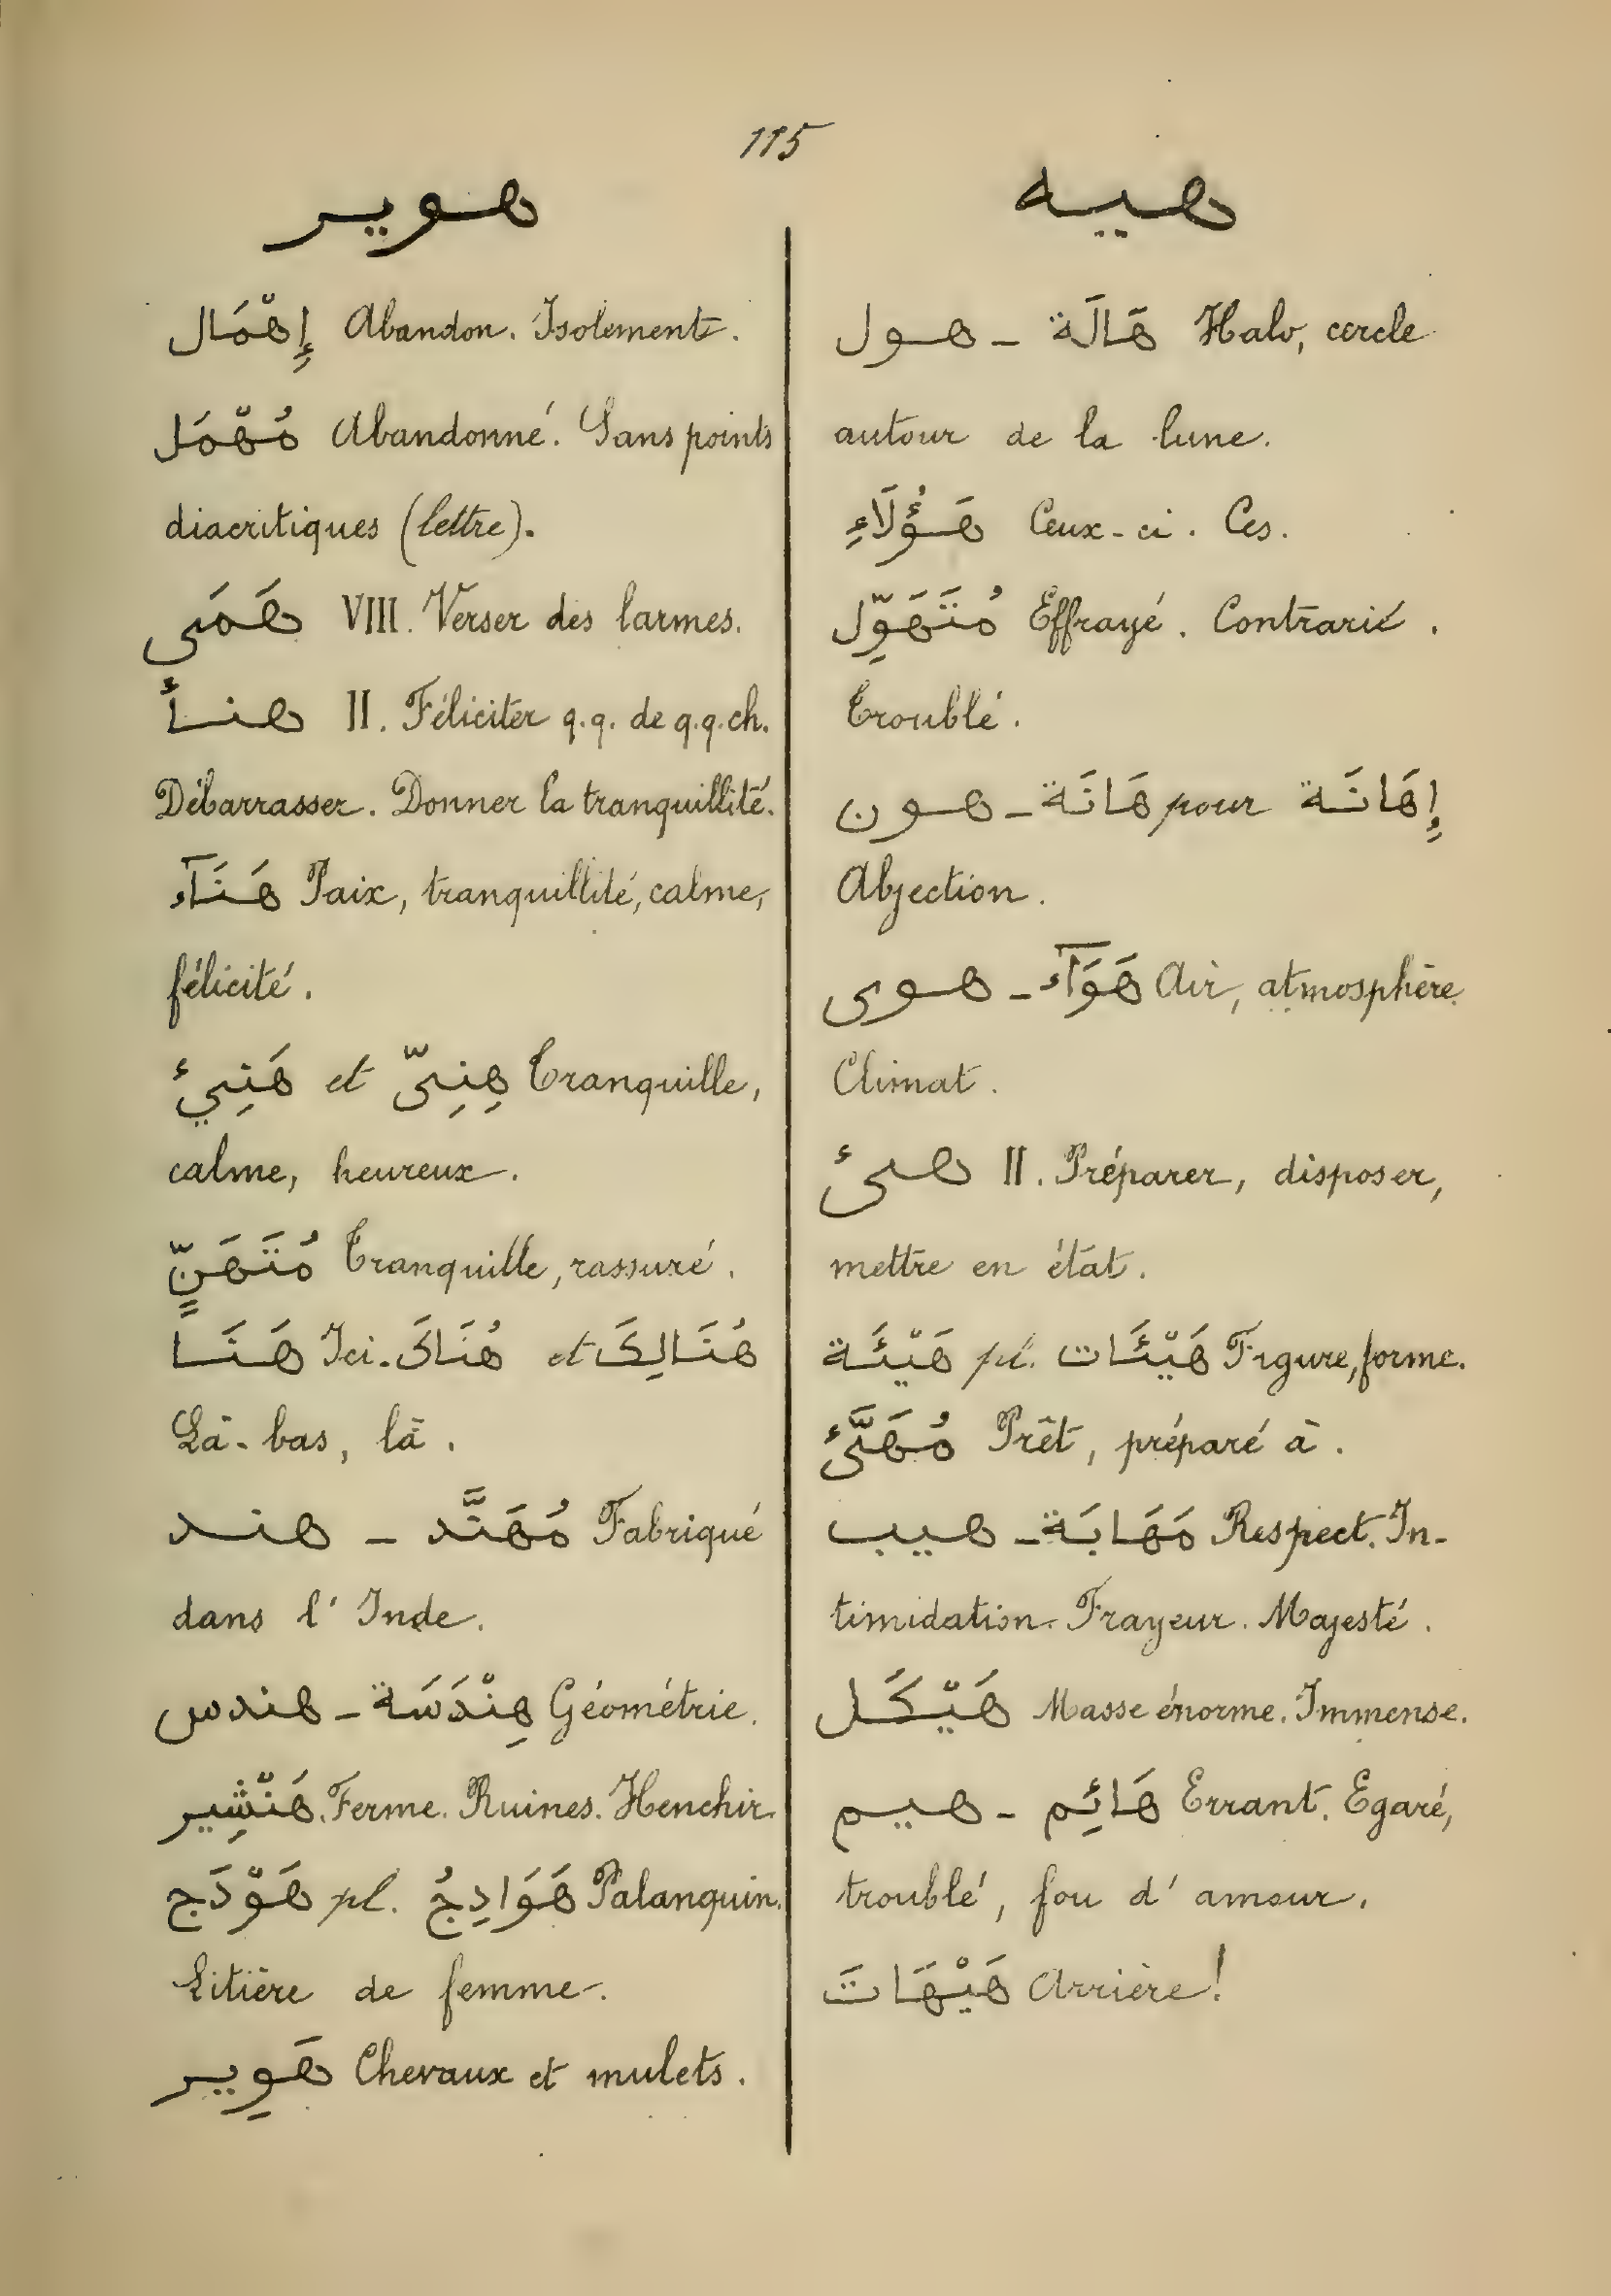 115
هوير
إِهْمَال Abandon. Isolement.
مُهْمَل Abandonné. Sans points
diacritiques (lettre).
هَمَى VIII. Verser des larmes.
هنأ II. Féliciter q.q. de q.q.ch.
Débarrasser. Donner la tranquillité.
هَنَآء Paix, tranquillité, calme,
félicité.
هَنِيئ et هِنِىّ Tranquille,
calme, heureux.
مُتَهَنٍّ Tranquille, rassuré.
هَنَا Ici. هُنَاكَ et هُنَالِكَ
Là-bas, là.
هند - مُهَنَّد Fabriqué
dans l'Inde.
هندس - هِنْدَسَة Géométrie.
هَنْشِير. Ferme. Ruines. Henchir.
هَوْدَج pl. هَوَادِجُ Palanquin.
Litière de femme.
هَوِير Chevaux et mulets.
هيه
هول - هَالَة Halo, cercle
autour de la lune.
هَؤُلَاءِ Ceux-ci. Ces.
مُتَهَوِّل Effrayé. Contrarié.
Troublé.
هون - هَانَة pour إِهَانَة
Abjection.
هوى - هَوَآء Air, atmosphère.
Climat.
هىئ II. Préparer, disposer,
mettre en état.
هَيْئَة pl. هَيْئَات Figure, forme.
مُهَىَّئ Prêt, préparé à.
هيب - مَهَابَة Respect. In-
timidation. Frayeur. Majesté.
هَيْكَل Masse énorme. Immense.
هيم - هَائِم Errant. Egaré,
troublé, fou d'amour.
هَيْهَاتَ Arrière!